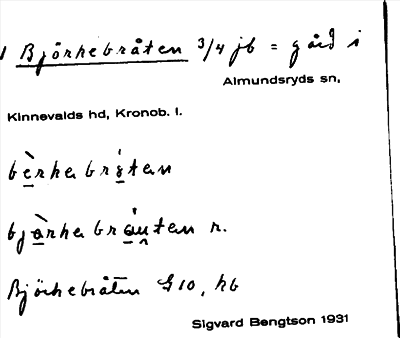 1 Björkebråten 3/4 jb = gård i
Almundsryds sn,
Kinnevalds hd, Kronob. l.
bèrkebrɑ́tɛn
bjàrkebráuten n.
Björkebråten G10, hb
Sigvard Bengtson 1931